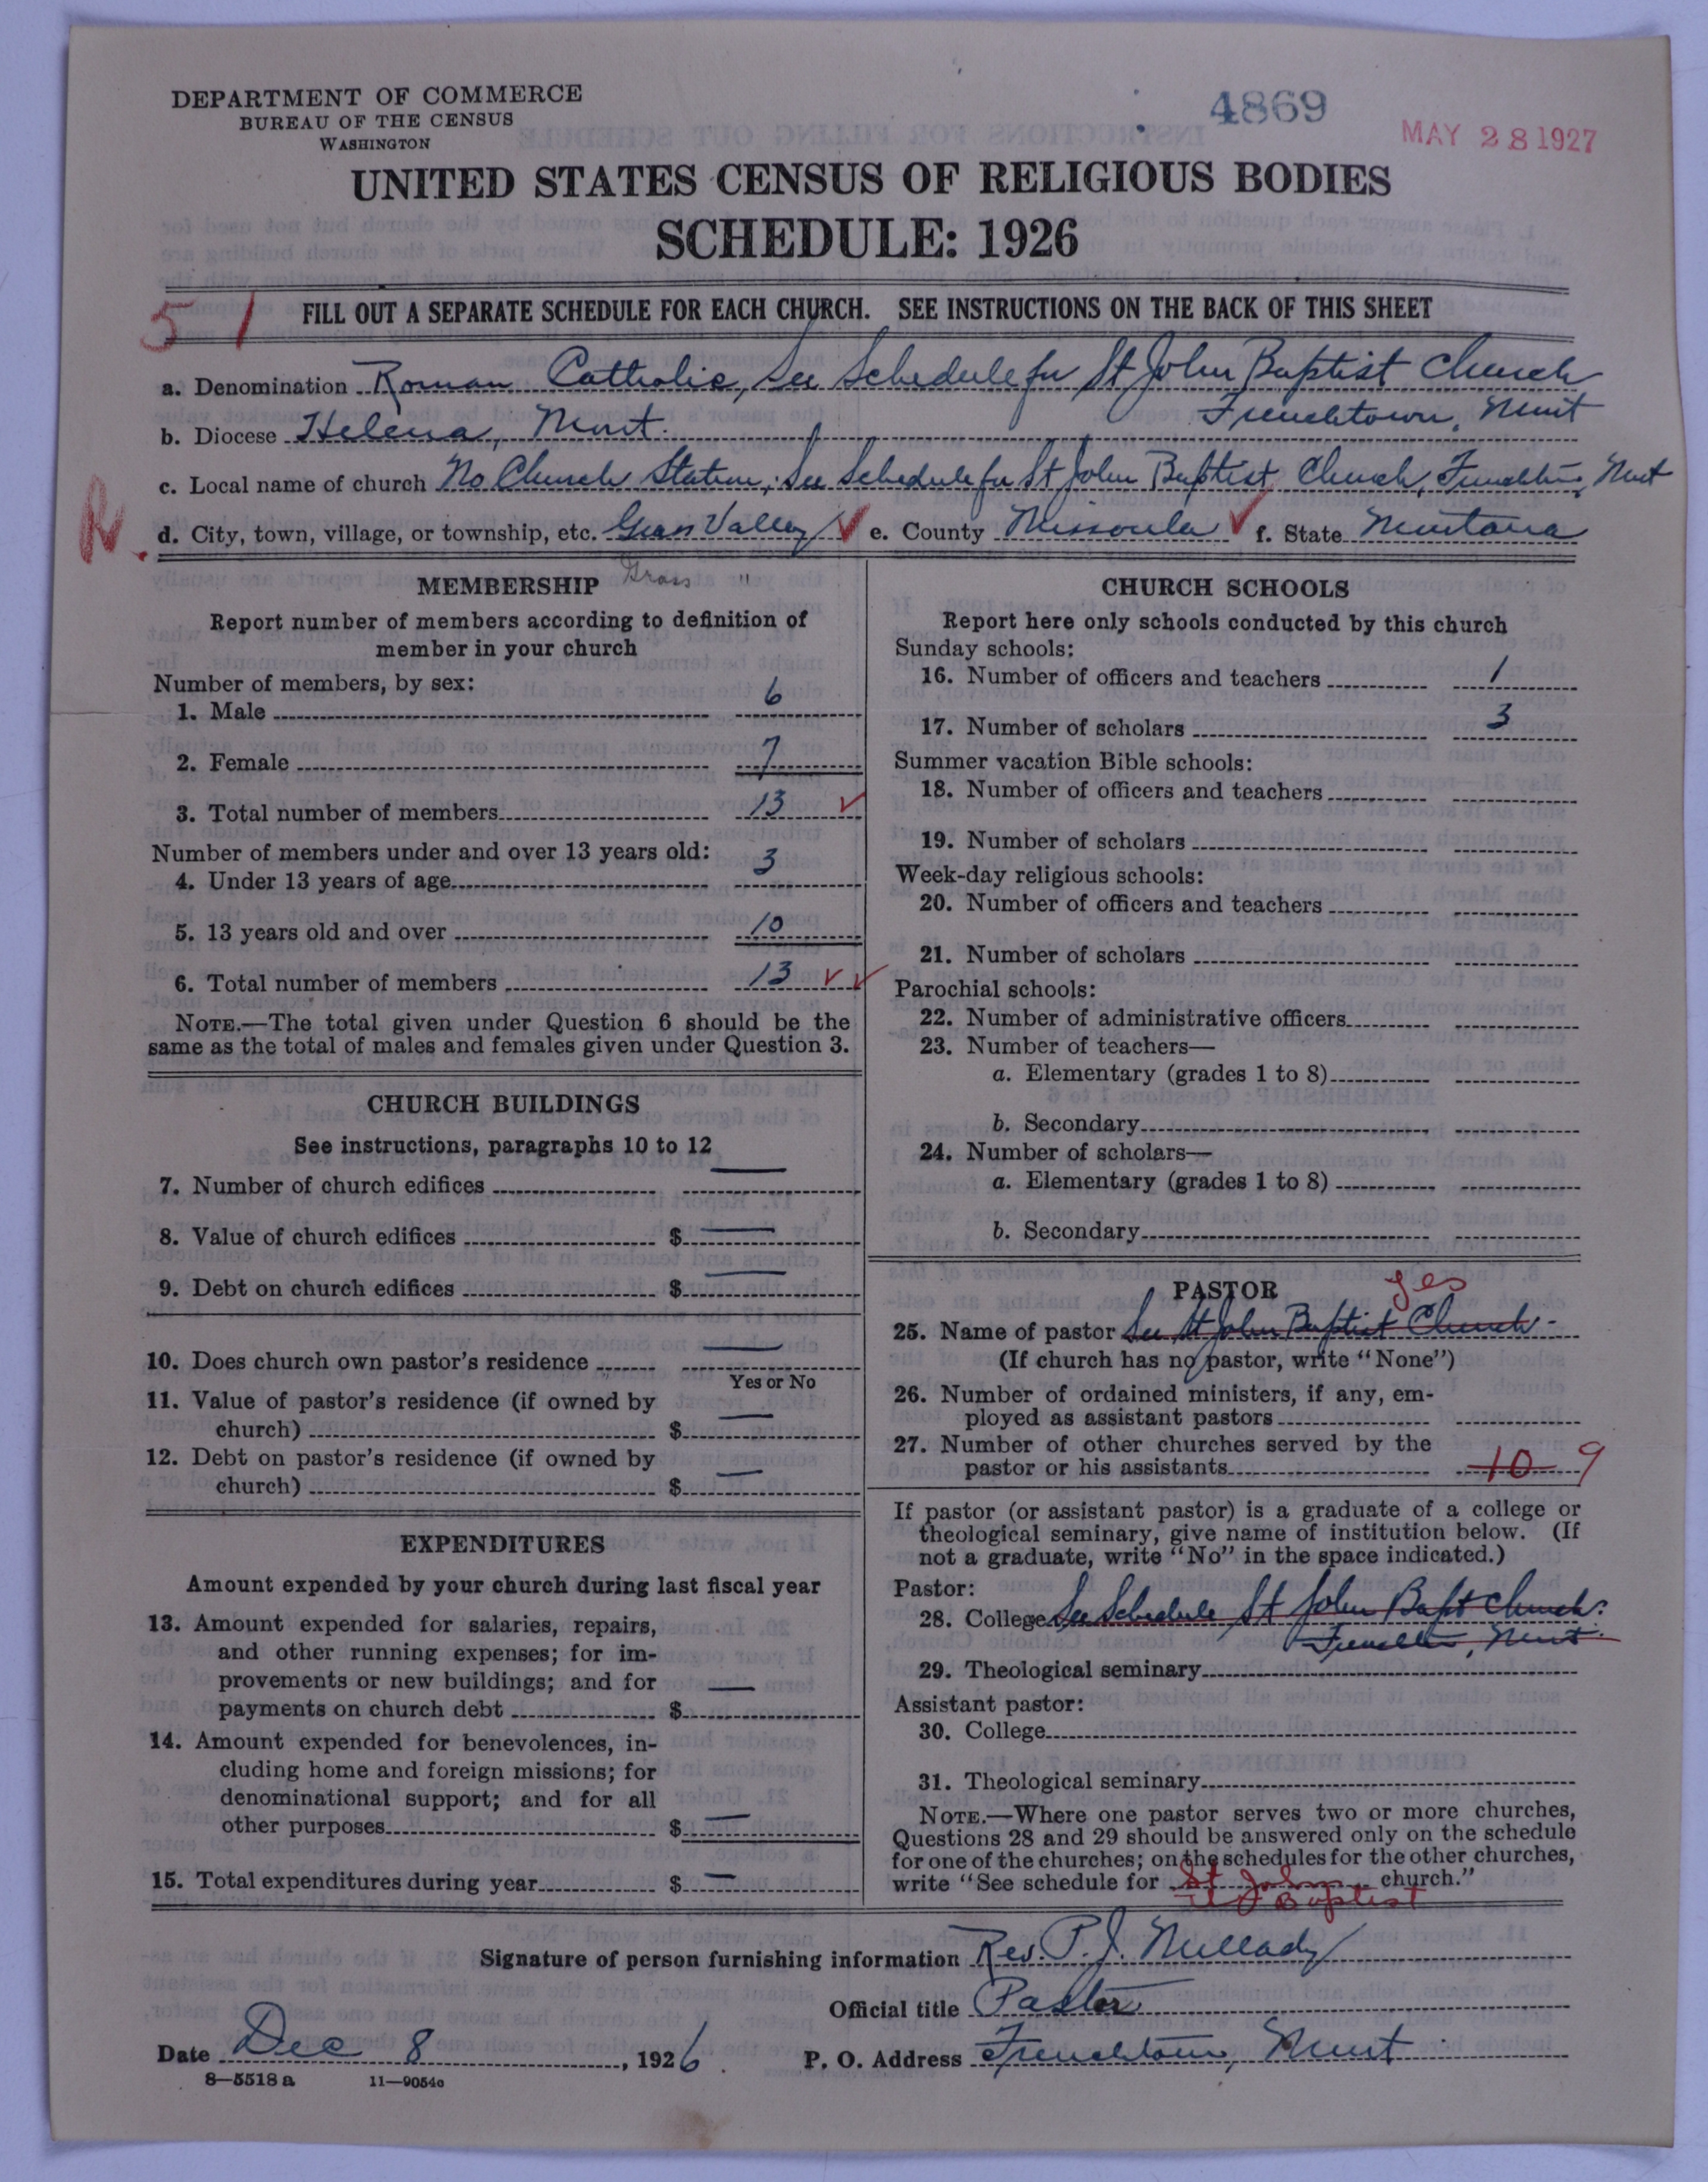 DEPARTMENT OF COMMERCE
BUREAU OF THE CENSUS
WASHINGTON
4869
MAY 28 1927
UNITED STATES CENSUS OF RELIGIOUS BODIES
SCHEDULE: 1926
5 1
FILL OUT A SEPARATE SCHEDULE FOR EACH CHURCH. SEE INSTRUCTIONS ON THE BACK OF THIS SHEET
a. Denomination Roman Catholic, See Schedule for St John Baptist Church
Frenchtown, Mont
b. Diocese Helena, Mont.
c. Local name of church No Church Station, See Schedule for St John Baptist Church, Frenchtown, Mont
R.
d. City, town, village, or township, etc. Grass Valley e. County Missoula f. State Montana
Grass "
MEMBERSHIP
Report number of members according to definition of
member in your church
Number of members, by sex:
1. Male 6
2. Female 7
3. Total number of members 13
Number of members under and over 13 years old:
4. Under 13 years of age 3
5. 13 years old and over 10
6. Total number of members 13
NOTE.—The total given under Question 6 should be the
same as the total of males and females given under Question 3.
CHURCH BUILDINGS
See instructions, paragraphs 10 to 12
7. Number of church edifices —
8. Value of church edifices $ —
9. Debt on church edifices $ —
10. Does church own pastor's residence —
Yes or No
11. Value of pastor's residence (if owned by
church) $ —
12. Debt on pastor's residence (if owned by
church) $ —
EXPENDITURES
Amount expended by your church during last fiscal year
13. Amount expended for salaries, repairs,
and other running expenses; for im-
provements or new buildings; and for
payments on church debt $ —
14. Amount expended for benevolences, in-
cluding home and foreign missions; for
denominational support; and for all
other purposes $ —
15. Total expenditures during year $ —
CHURCH SCHOOLS
Report here only schools conducted by this church
Sunday schools:
16. Number of officers and teachers 1
17. Number of scholars 3
Summer vacation Bible schools:
18. Number of officers and teachers
19. Number of scholars
Week-day religious schools:
20. Number of officers and teachers
21. Number of scholars
Parochial schools:
22. Number of administrative officers
23. Number of teachers—
a. Elementary (grades 1 to 8)
b. Secondary
24. Number of scholars—
a. Elementary (grades 1 to 8)
b. Secondary
PASTOR yes
25. Name of pastor See St John Baptist Church-
(If church has no pastor, write "None")
26. Number of ordained ministers, if any, em-
ployed as assistant pastors
27. Number of other churches served by the
pastor or his assistants 10 9
If pastor (or assistant pastor) is a graduate of a college or
theological seminary, give name of institution below. (If
not a graduate, write "No" in the space indicated.)
Pastor:
28. College See Schedule St John Bapt Church.
Frenchtown, Mont.
29. Theological seminary
Assistant pastor:
30. College
31. Theological seminary
NOTE.—Where one pastor serves two or more churches,
Questions 28 and 29 should be answered only on the schedule
for one of the churches; on the schedules for the other churches,
write "See schedule for St Johns church."
Baptist
Signature of person furnishing information Rev. P. J. Nellady
Official title Pastor
Date Dec 8, 1926.
P. O. Address Frenchtown, Mont
8—5518 a 11—9054c